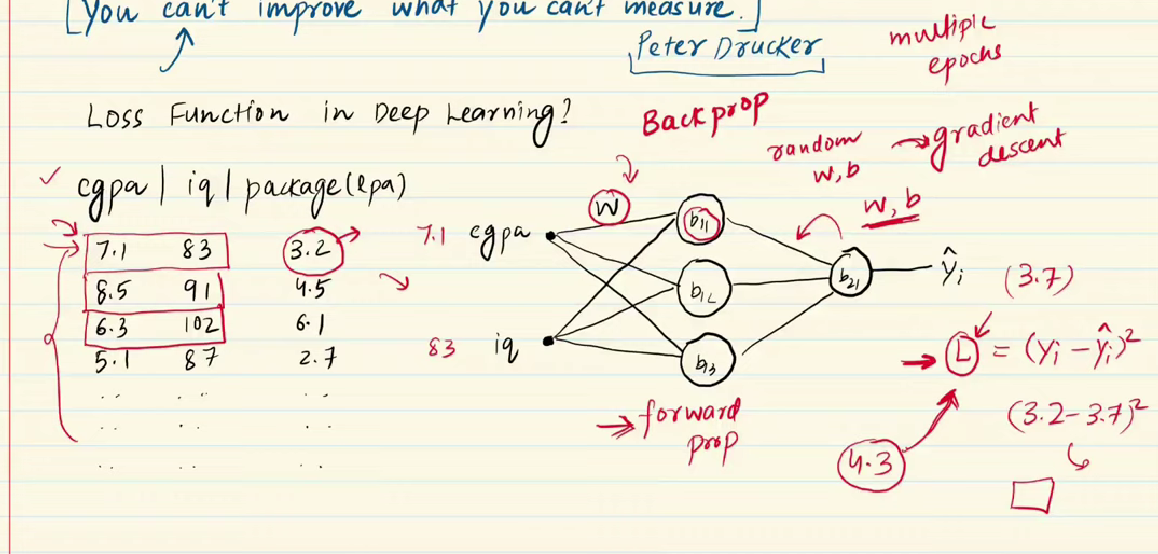 [You can't improve what you can't measure.]
Peter Drucker
multiple
epochs
Loss Function in Deep Learning?
Backprop
random
w, b
→ gradient
descent
✓ cgpa | iq | package(lpa)
w, b
7.1 83 3.2
8.5 91 4.5
6.3 102 6.1
5.1 87 2.7
.. .. ..
.. .. ..
.. .. ..
7.1 cgpa
83 iq
W
b11
b12
b13
b21
ŷi (3.7)
→ L = (yi - ŷi)²
(3.2-3.7)²
4.3
→ forward
prop